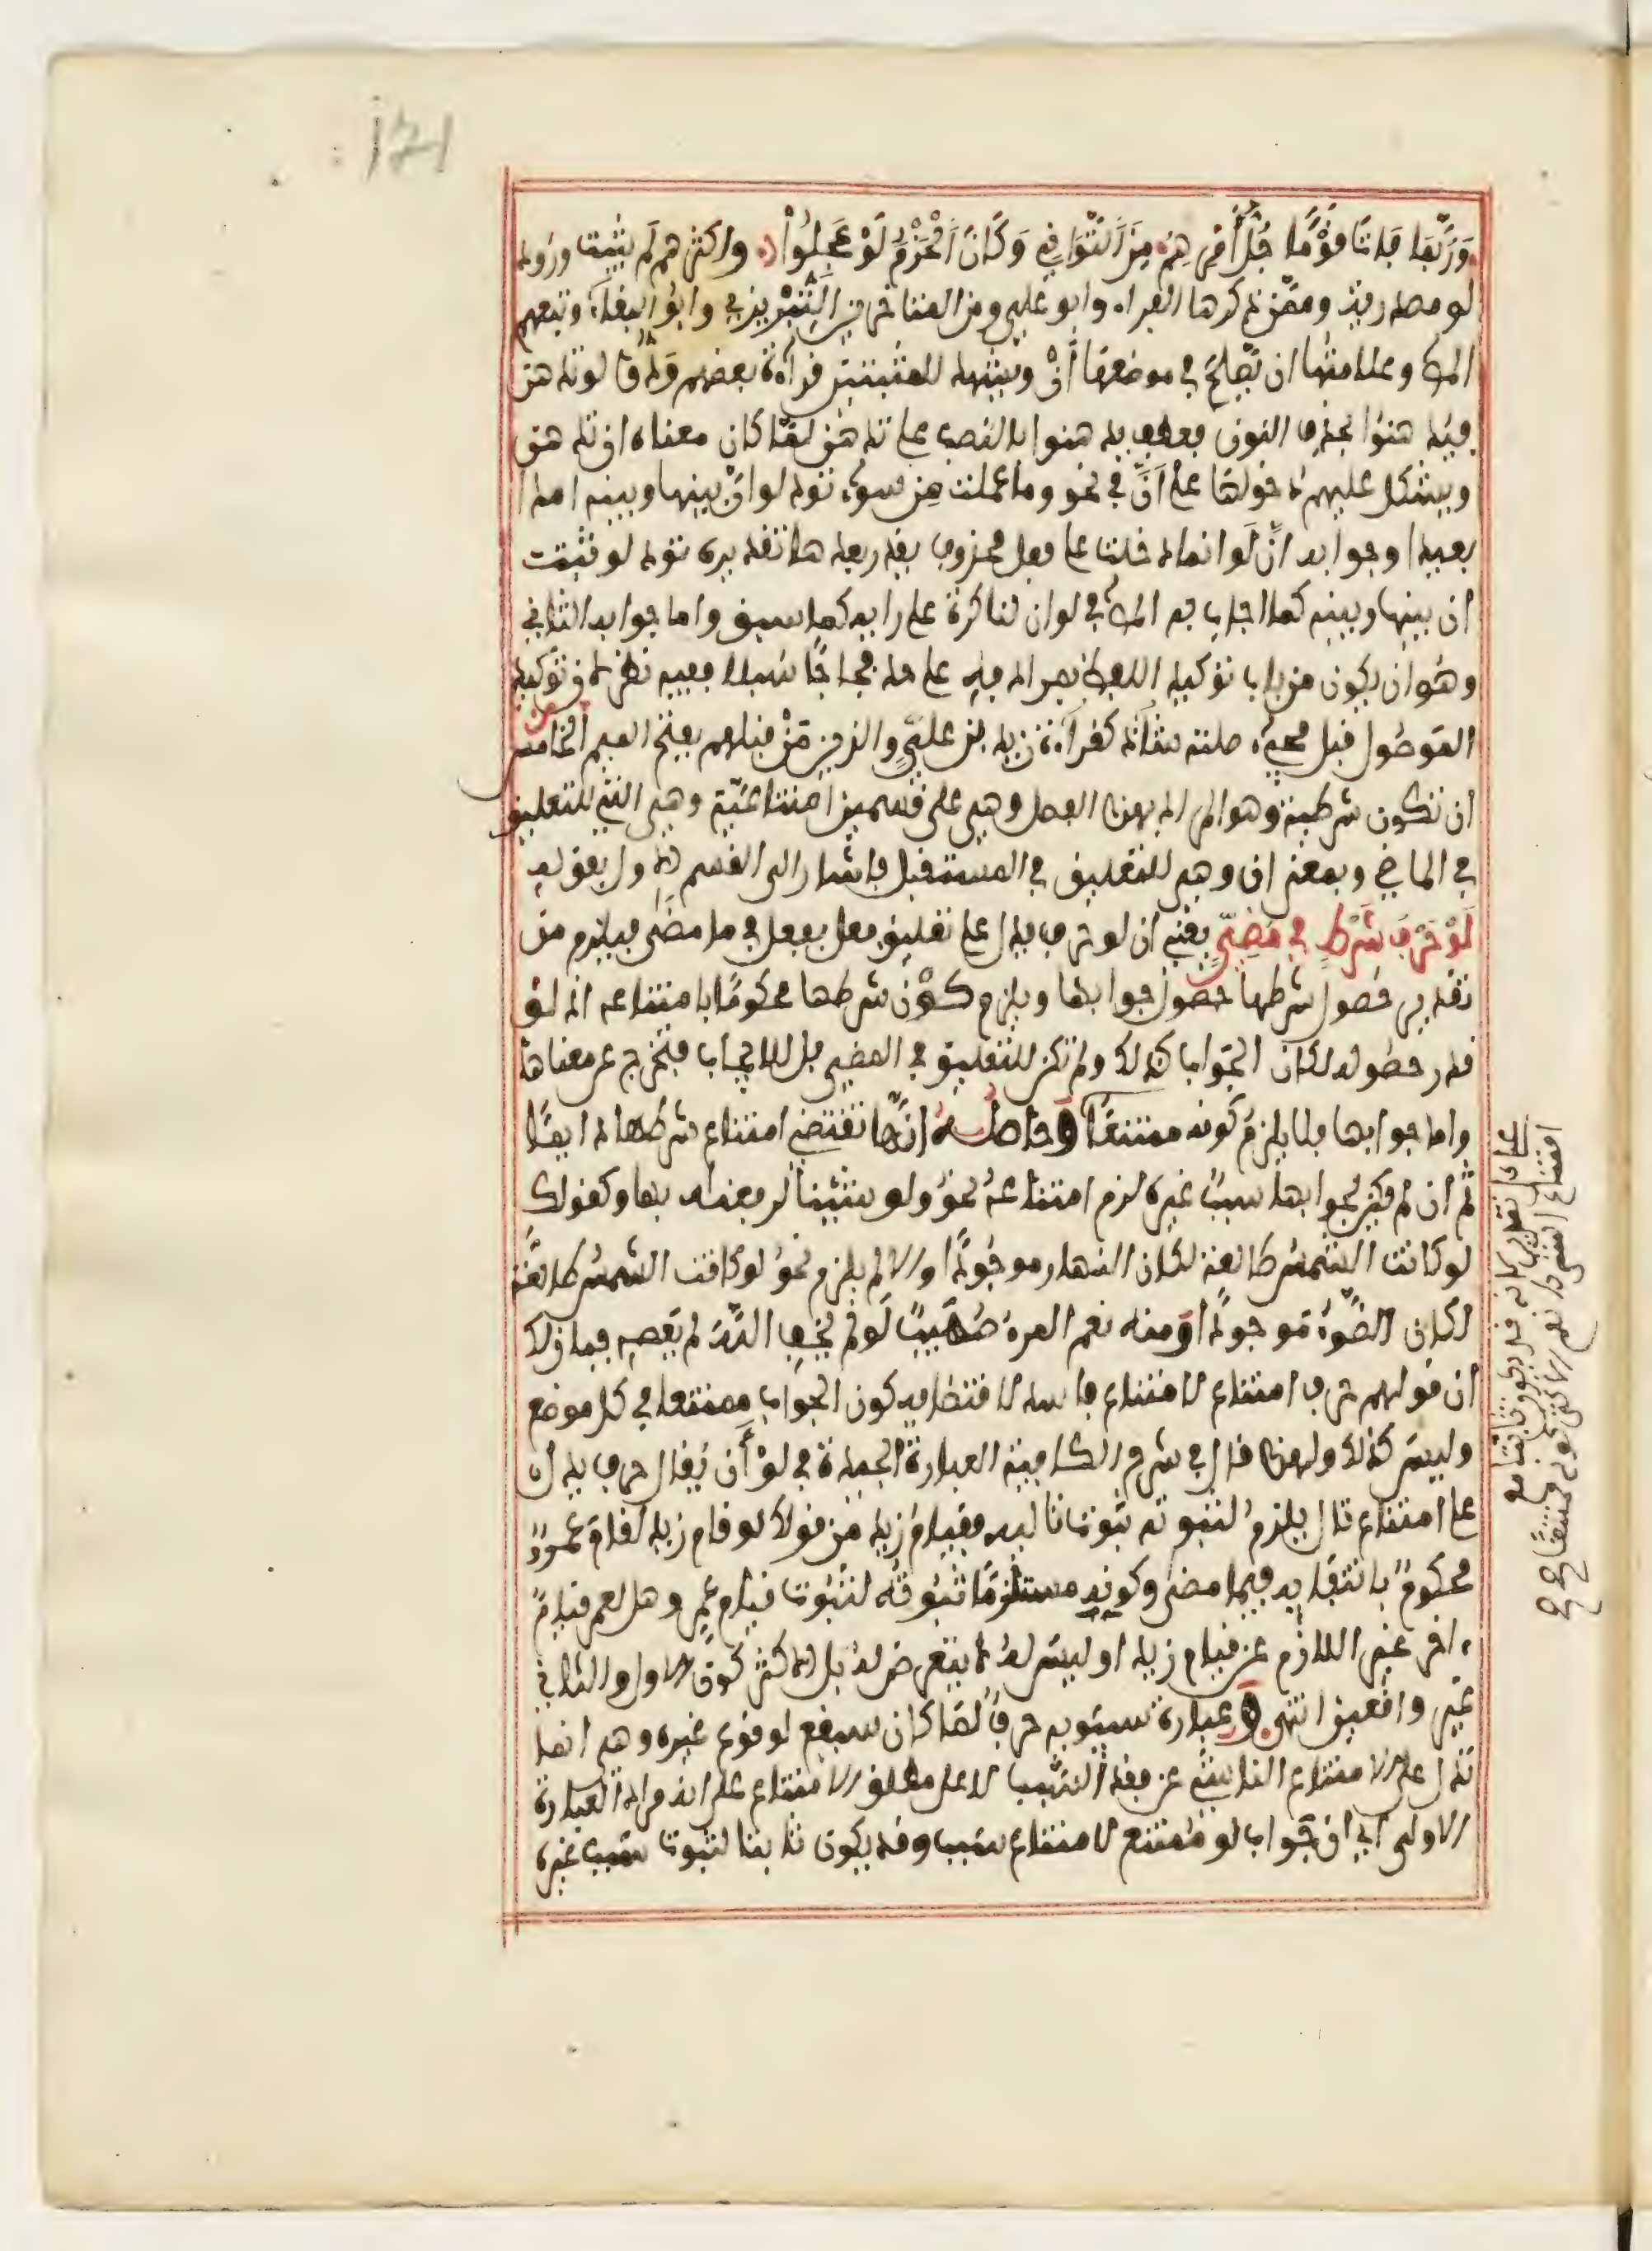 121
وَرُبَّمَا فَاتَ قَوْمًا جُلُّ أَمْرِهِمُ مِنَ التَّوَانِي وَكَانَ الْحَزْمُ لَوْ عَجِلُوا واكثرهم لم يثبت ورود
لو مصدرية وممن ذكرها الفراء وابو علي ومن المتاخرين التبريزي وابو البقاء وتبعهم
المص وعلامتها ان يصلح في موضعها أنْ ويشهد للمثبتين قرآءة بعضهم ودوا لو تدهن
فيدهنوا بحذف النون فعطف يدهنوا بالنصب على تدهن لما كان معناه ان تدهن
ويشكل عليهم دخولها على أنّ في نحو وما عملت من سوء تود لو انّ بينها وبينه امدا
بعيدا وجوابه انّ لو انما دخلت على فعل محذوف بعدها تقديره تود لو ثبت
ان بينها وبينه كما اجاب به المص في لو ان لنا كرة على رايه كما سبق واما جوابه الثاني
وهو ان يكون من باب توكيد اللفظ بمرادفه على حد فجاجا سبلا ففيه نظر لان توكيد
الموصول قبل مجيء صلته شاذ كقرآءة زيد بن علي والذين من قبلهم بفتح الميم الخامس
ان تكون شرطية وهو المراد بهذا الفصل وهي على قسمين امتناعية وهي التي للتعليق
في الماضي وبمعنى ان وهي للتعليق في المستقبل فاشار الى القسم الاول بقوله
لَوْ حَرْفُ شَرْطٍ فِي مُضِيٍّ يعني ان لو حرف يدل على تعليق فعل بفعل في ما مضى فيلزم من
تقدير حصول شرطها حصول جوابها ويلزم كون شرطها محكوما بامتناعه اذ لو
قدر حصوله لكان الجواب كذلك ولم تكن للتعليق في المضي بل للايجاب فتخرج عن معناها
واما جوابها فلا يلزم كونه ممتنعا وحاصله انها تقتضي امتناع شرطها دايما
ثم ان لم يكن لجوابها سبب غيره لزم امتناعه نحو ولو شئنا لرفعناه بها وكقولك
لو كانت الشمس طالعة لكان النهار موجودا والا لم يلزم نحو لو كانت الشمس طالعة
لكان الضوء موجودا ومنه نعم المرء صهيب لو لم يخف الله لم يعصه فبان لك
ان قولهم حرف امتناع لامتناع فاسد لاقتضائه كون الجواب ممتنعا في كل موضع
وليس كذلك ولهذا قال في شرح الكافية العبارة الجيدة في لو أن يقال حرف يدل
على امتناع تال يلزم لثبوته ثبوت تاليه فقيام زيد من قولك لو قام زيد لقام عمرو
محكوم بانتفايه فيما مضى وكونه مستلزما ثبوته لثبوت قيام عمرو وهل لعمرو قيام
ءاخر غير اللازم عن قيام زيد او ليس له لا يتعرض له بل الاكثر كون الاول والثاني
غير واقعين انتهى وعبارة سيبويه حرف لما كان سيقع لوقوع غيره وهي انما
تدل على الامتناع الناشي عن فقد السبب لا على مطلق الامتناع على انه مراد العبارة
الاولى اي ان جواب لو ممتنع لامتناع سببه وقد يكون ثابتا لثبوت سبب غيره